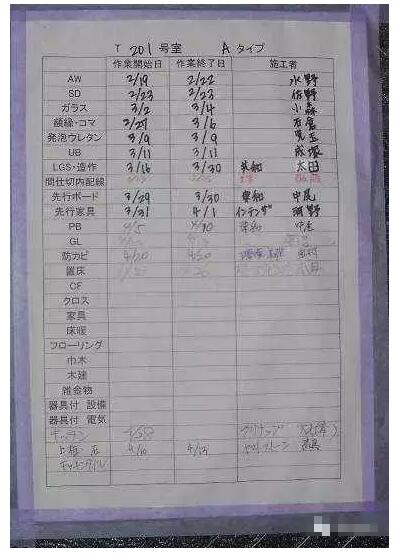 T 201 号室 A タイプ
作業開始日 作業終了日 施工者
AW 2/19 2/22 水野
SD 2/23 2/23 佐野
ガラス 3/2 3/4 小森
額縁・コマ 2/27 3/6 石倉
発泡ウレタン 3/9 3/9 児玉
UB 3/11 3/11 成塚
LGS・造作 3/16 3/30 共和 太田
間仕切内配線
先行ボード 3/29 3/30 中尾
先行家具 3/31 4/1 河野
PB 4/5 4/10
GL
防カビ 4/20 4/20
置床
CF
クロス
家具
床暖
フローリング
巾木
木建
雑金物
器具付 設備
器具付 電気
キッチン クリナップ
4/10 4/13
キッチンタイル